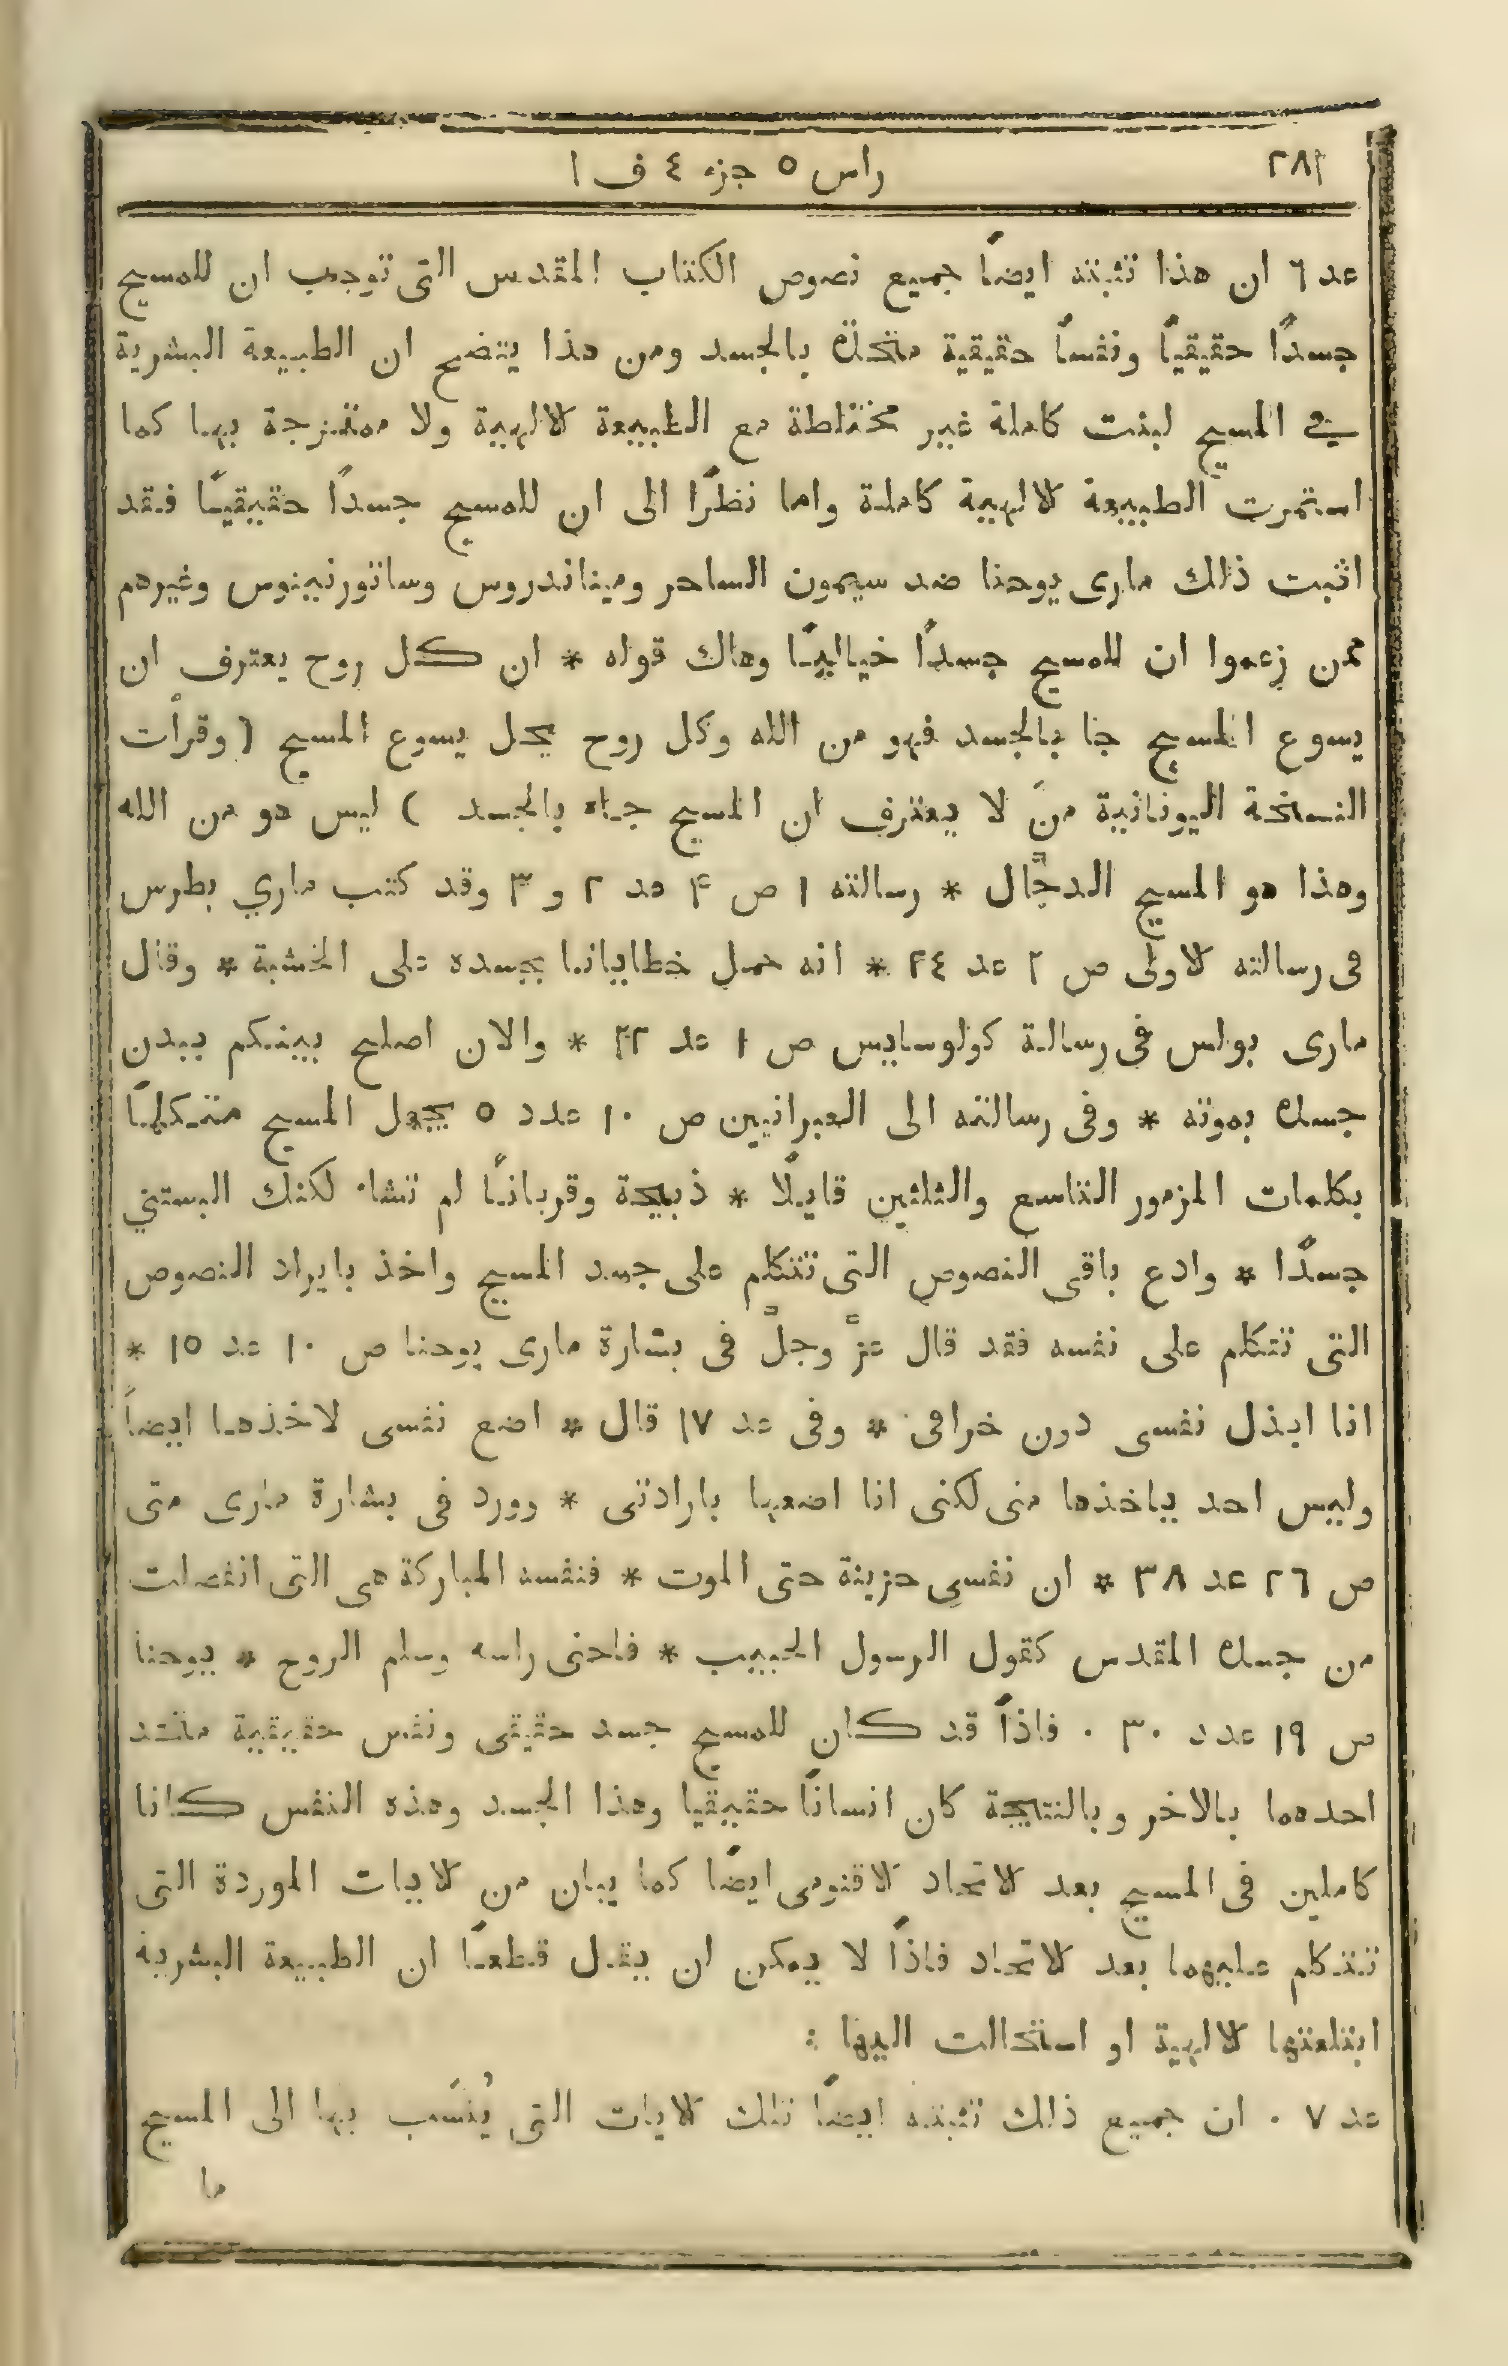 ٢٨٢
راس ٥ جزء ٤ ف ١
عد ٦ ان هذا تثبته ايضاً جميع نصوص الكتاب المقدس التى توجب ان للمسيح
جسدًا حقيقياً ونفساً حقيقية متحدة بالجسد ومن هذا يتضح ان الطبيعة البشرية
في المسيح لبثت كاملة غير مختلطة مع الطبيعة الالهية ولا ممتزجة بها كما
استمرت الطبيعة الالهية كاملة واما نظرًا الى ان للمسيح جسدًا حقيقيًا فقد
اثبت ذلك مارى يوحنا ضد سيمون الساحر وميناندروس وساتورنينوس وغيرهم
ممن زعموا ان للمسيح جسدًا خياليًا وهاك قوله * ان كل روح يعترف ان
يسوع المسيح جا بالجسد فهو من الله وكل روح يحل يسوع المسيح (وقرأت
النسخة اليونانية منَ لا يعترف ان المسيح جاء بالجسد ) ليس هو من الله
وهذا هو المسيح الدجَّال * رسالته ١ ص ۴ عد ٢ و ٣ وقد كتب ماري بطرس
فى رسالته الاولى ص ٢ عد ٢٤ * انه حمل خطايانا بجسده على الخشبة * وقال
مارى بولس فى رسالة كولوسايس ص ١ عد ٢٢ * والان اصلح بينكم ببدن
جسده بموته * وفى رسالته الى العبرانيين ص ١٠ عدد ٥ يجعل المسيح متكلمًا
بكلمات المزمور التاسع والثلثين قايلًا * ذبيحة وقربانًا لم تشاء لكنك البستني
جسدًا * وادع باقى النصوص التى تتكلم على جسد المسيح واخذ بايراد النصوص
التى تتكلم على نفسه فقد قال عزّ وجلّ فى بشارة مارى يوحنا ص ١٠ عد ١٥ *
انا ابذل نفسى دون خرافى * وفى عد ١٧ قال * اضع نفسى لاخذها ايضاً
وليس احد ياخذها منى لكنى انا اضعها بارادتى * وورد فى بشارة مارى متى
ص ٢٦ عد ٣٨ * ان نفسى حزينة حتى الموت * فنفسه المباركة هى التى انفصلت
من جسده المقدس كقول الرسول الحبيب * فاحنى راسه وسلم الروح * يوحنا
ص ١٩ عدد ٣٠ . فاذاً قد كان للمسيح جسد حقيقى ونفس حقيقية متحد
احدهما بالاخر وبالنتيجة كان انسانًا حقيقيا وهذا الجسد وهذه النفس كانا
كاملين فى المسيح بعد الاتحاد الاقنومى ايضًا كما يبان من الايات الموردة التى
تتكلم عليهما بعد الاتحاد فاذاً لا يمكن ان يقل قطعًا ان الطبيعة البشرية
ابتلعتها الالهية او استحالت اليها :
عد ٧ . ان جميع ذلك تثبته ايضاً تلك الايات التى يُنسَب بها الى المسيح
ما